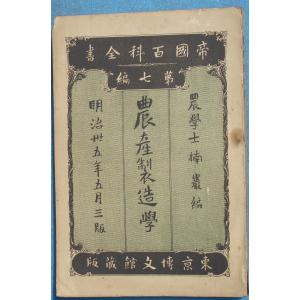 帝國百科全書
第七編
農學士楠巖編
農產製造學
明治卅五年五月三版
東京博文館蔵版